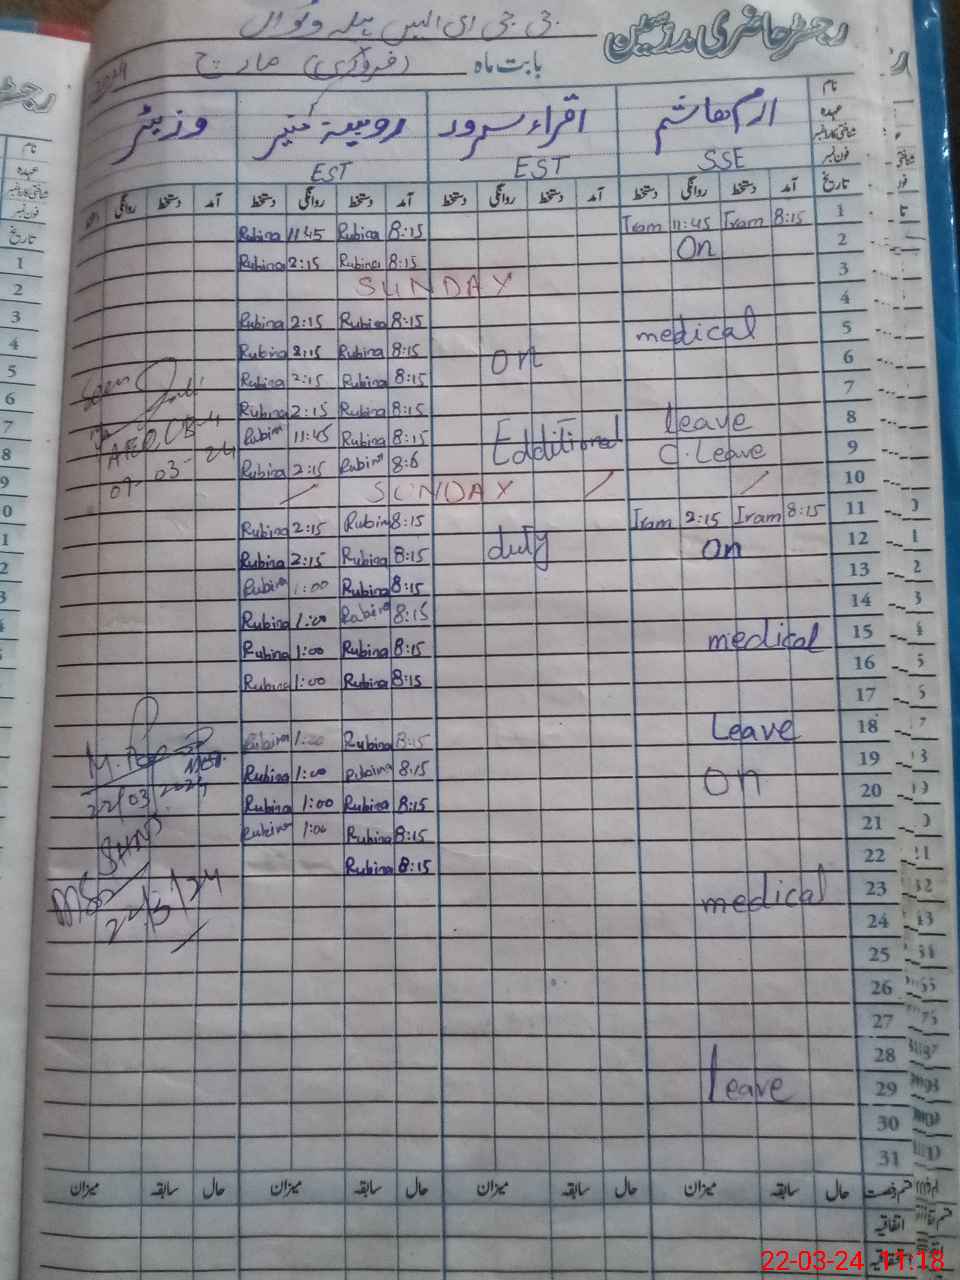 رجسٹر حاضری مدرسین
جی جی ای ایس
بابت ماہ (فروری) مارچ 2024
نام ارم ہاشم اقراء سرور روبینہ منیر وزیٹر
عہدہ
شناختی کارڈ نمبر
فون نمبر SSE EST EST
تاریخ آمد دستخط روانگی دستخط آمد دستخط روانگی دستخط آمد دستخط روانگی دستخط آمد دستخط روانگی
1 8:15 Iram 11:45 Iram 8:15 Rubina 11:45 Rubina
2 On 8:15 Rubina 2:15 Rubina
3 SUNDAY
4 8:15 Rubina 2:15 Rubina
5 medical 8:15 Rubina 2:15 Rubina
6 on 8:15 Rubina 2:15 Rubina
7 8:15 Rubina 2:15 Rubina
8 leave Edditional 8:15 Rubina 11:45 Rubina
9 C. Leave 8:6 Rubina 2:15 Rubina
10 SUNDAY
11 8:15 Iram 2:15 Iram 8:15 Rubina 2:15 Rubina
12 On duty 8:15 Rubina 2:15 Rubina
13 8:15 Rubina 1:00 Rubina
14 8:15 Rubina 1:00 Rubina
15 medical 8:15 Rubina 1:00 Rubina
16 8:15 Rubina 1:00 Rubina
17
18 Leave 8:15 Rubina 1:00 Rubina
19 8:15 Rubina 1:00 Rubina
20 On 8:15 Rubina 1:00 Rubina
21 8:15 Rubina 1:00 Rubina
22 8:15 Rubina
23 medical
24
25
26
27
28
29 Leave
30
31
Seen
AEO
07-03-24
22/03/2024
22/3/24
قسم رخصت حال سابقہ میزان حال سابقہ میزان حال سابقہ میزان حال سابقہ میزان
اتفاقیہ
22-03-24 11:18